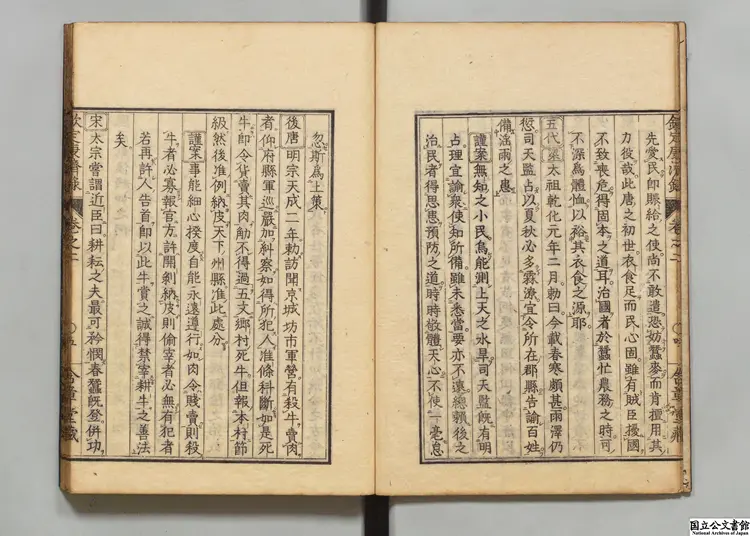 先愛民即賑給之使尚不敢遣恐妨蠶麥而肯擅用其
力役哉此唐之初世衣食足而民心固雖有賊臣擾國
不致喪危得固本之道耳治國者於蠶忙農務之時可
不深爲體恤以裕其衣食之源耶
五代梁太祖乾化元年二月勅曰今載春寒頗甚雨澤仍
愆司天監占以夏秋必多霖潦宜令所在郡縣告諭百姓
備淫雨之患
謹案無知之小民烏能測上天之水旱司天監既有明
占理宜諭衆使知所備雖未悉當要亦不遠總賴後之
治民者得思患預防之道時時敬體天心不使一毫怠
卷之二
舍章堂藏
忽斯爲上策
後唐明宗天成二年勅訪聞京城坊市軍營有殺牛賣肉
者仰府縣軍巡嚴加糾察如得所犯人准條科斷如是死
牛即令貨賣其肉觔不得過五文鄉村死牛但報本村節
級然後准例納皮天下州縣准此處分
謹案事能細心揆度自能永遠遵行如肉令賤賣則殺
牛者必寡報官方許開剝納皮則偷宰者必無有犯者
若再許人告首即以此牛賞之誠得禁宰耕牛之善法
矣
宋太宗嘗謂近臣曰耕耘之夫最可矜憫春蠶既登併功
卷之二
五
舍章堂藏
国立公文書館
National Archives of Japan